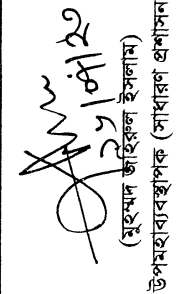 (মুহম্মদ জাহিরুল ইসলাম)
উপমহাব্যবস্থাপক (সাধারণ প্রশাসন